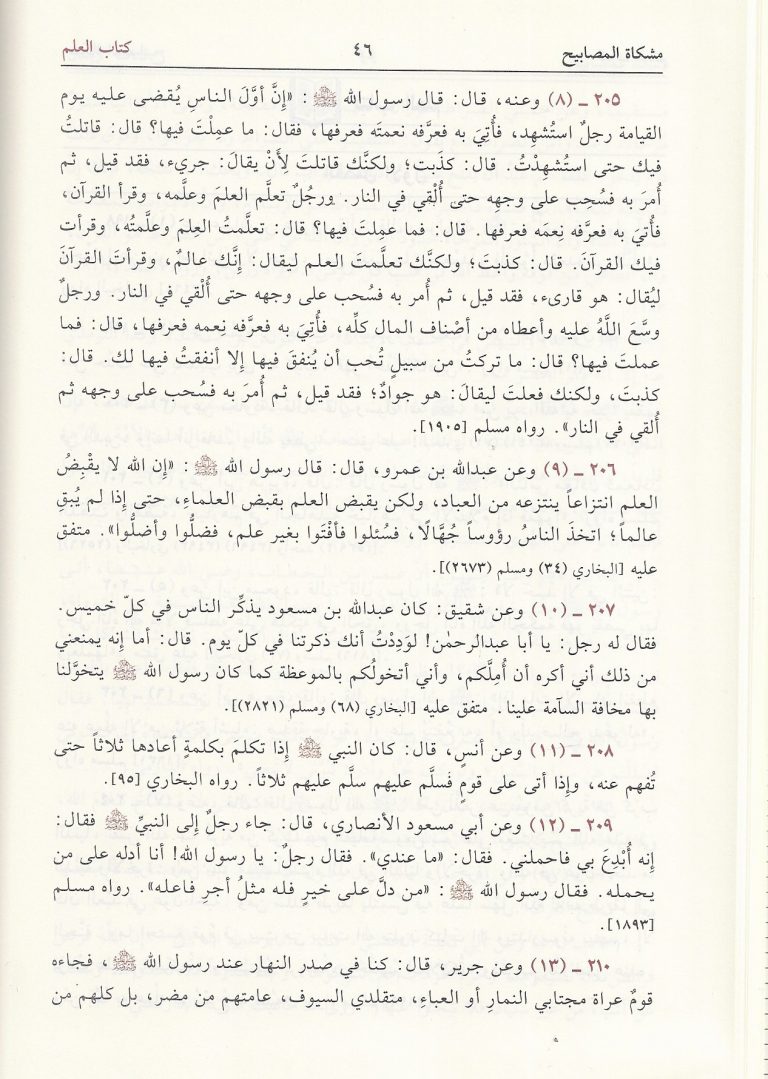 مشكاة المصابيح
٤٦
كتاب العلم
٢٠٥ ـ (٨) وعنه، قال: قال رسول الله ﷺ : «إِنَّ أوَّلَ الناسِ يُقضى عليه يوم
القيامة رجلٌ استُشهِد، فأُتِيَ به فعرَّفه نعمتَه فعرفها، فقال: ما عمِلْتَ فيها؟ قال: قاتلتُ
فيك حتى استُشهِدْتُ. قال: كذَبت؛ ولكنَّك قاتلتَ لِأَنْ يقالَ: جريء، فقد قيل، ثم
أُمرَ به فسُحِب على وجهِه حتى أُلْقي في النار. ورجُلٌ تعلَّم العلمَ وعلَّمه، وقرأ القرآن،
فأُتيَ به فعرَّفه نِعمَه فعرفها. قال: فما عمِلتَ فيها؟ قال: تعلَّمتُ العِلمَ وعلَّمتُه، وقرأت
فيك القرآنَ. قال: كذبتَ؛ ولكنَّك تعلَّمتَ العلم ليقال: إِنَّك عالمٌ، وقرأتَ القرآنَ
ليُقال: هو قارىء، فقد قيل، ثم أُمر به فسُحب على وجهه حتى أُلْقي في النار. ورجلٌ
وسَّعَ اللَّهُ عليه وأعطاه من أصْناف المال كلِّه، فأُتِيَ به فعرَّفه نِعمه فعرفها، قال: فما
عملتَ فيها؟ قال: ما تركتُ من سبيلٍ تُحب أن يُنفقَ فيها إِلا أنفقتُ فيها لك. قال:
كذبتَ، ولكنك فعلتَ ليقالَ: هو جوادٌ؛ فقد قيل، ثم أُمرَ به فسُحب على وجهه ثم
أُلقي في النار». رواه مسلم [١٩٠٥].
٢٠٦ ـ (٩) وعن عبدالله بن عمرو، قال: قال رسول الله ﷺ : «إِن الله لا يقْبِضُ
العلم انتزاعاً ينتزعه من العباد، ولكن يقبض العلم بقبض العلماءِ، حتى إِذا لم يُبقِ
عالماً؛ اتخذَ الناسُ رؤوساً جُهَّالًا، فسُئلوا فأفْتَوا بغير علم، فضلُّوا وأضلُّوا». متفق
عليه [البخاري (٣٤) ومسلم (٢٦٧٣)].
٢٠٧ ـ (١٠) وعن شقيق: كان عبدالله بن مسعود يذكِّر الناس في كلّ خميس.
فقال له رجل: يا أبا عبدالرحمٰن! لوَدِدْتُ أنك ذكرتنا في كلّ يوم. قال: أما إِنه يمنعني
من ذلك أني أكره أن أُمِلَّكم، وأني أتخولُكم بالموعظة كما كان رسول الله ﷺ يتخوَّلنا
بها مخافة السآمة علينا. متفق عليه [البخاري (٦٨) ومسلم (٢٨٢١)].
٢٠٨ ـ (١١) وعن أنسٍ، قال: كان النبي ﷺ إِذا تكلمَ بكلمةٍ أعادها ثلاثاً حتى
تُفهم عنه، وإِذا أتى على قومٍ فَسلَّم عليهم سلَّم عليهم ثلاثاً. رواه البخاري [٩٥].
٢٠٩ ـ (١٢) وعن أبي مسعود الأنصاري، قال: جاء رجلٌ إِلى النبيِّ ﷺ فقال:
إِنه أُبْدِعَ بي فاحملني. فقال: «ما عندي». فقال رجلٌ: يا رسول الله! أنا أدله على من
يحمله. فقال رسول الله ﷺ : «من دلَّ على خيرٍ فله مثلُ أجرِ فاعله». رواه مسلم
[١٨٩٣].
٢١٠ ـ (١٣) وعن جرير، قال: كنا في صدر النهار عند رسول الله ﷺ، فجاءه
قومٌ عراة مجتابي النمارِ أو العباءِ، متقلدي السيوف، عامتهم من مضر، بل كلهم من